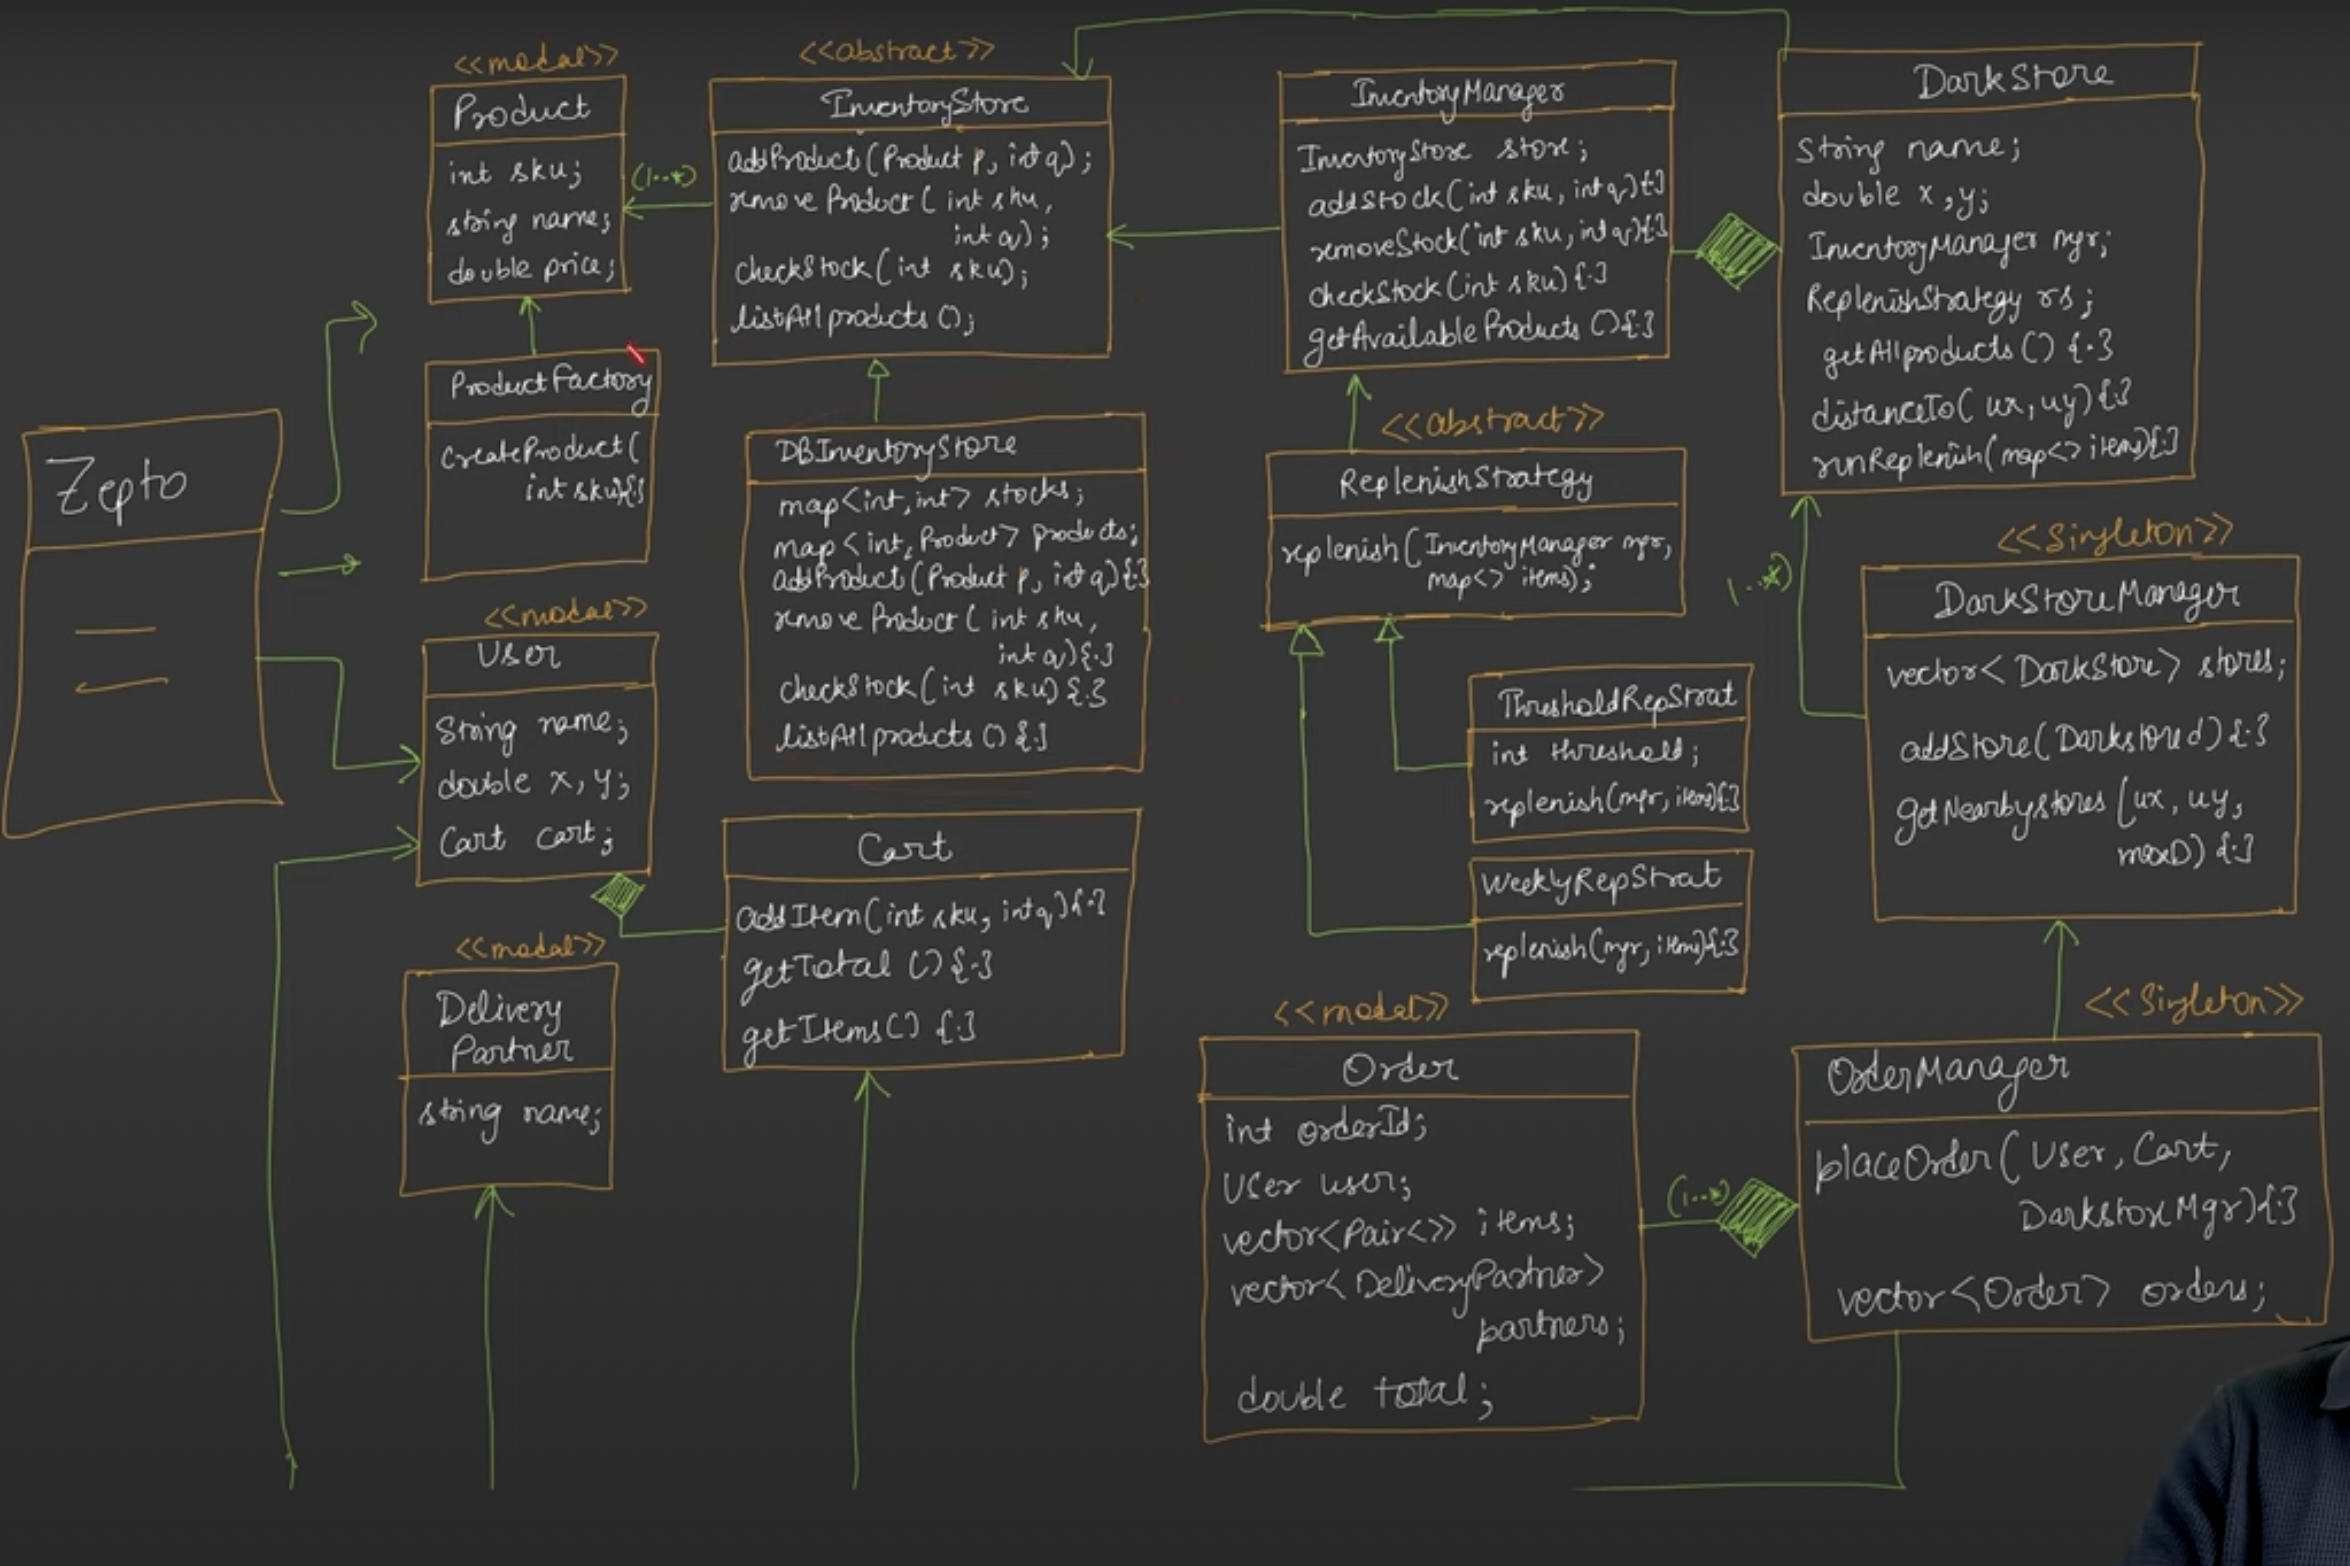 <<modal>>
Product
int sku;
string name;
double price;
ProductFactory
createProduct(
int sku){.}
Zepto
<<modal>>
User
String name;
double x, y;
Cart cart;
<<modal>>
Delivery
Partner
string name;
<<abstract>>
InventoryStore
addProduct(Product p, int q);
remove Product(int sku,
int q);
checkStock(int sku);
listAllproducts();
(1..*)
DBInventoryStore
map<int,int> stocks;
map<int,Product> products;
addProduct(Product p, int q){.}
remove Product(int sku,
int q){.}
checkStock(int sku){.}
listAllproducts(){.}
Cart
addItem(int sku, int q){.}
getTotal(){.}
getItems(){.}
InventoryManager
InventoryStore store;
addStock(int sku, int q){.}
removeStock(int sku, int q){.}
checkStock(int sku){.}
getAvailableProducts(){.}
<<abstract>>
ReplenishStrategy
replenish(InventoryManager mgr,
map<> items);
ThresholdRepStrat
int threshold;
replenish(mgr, items){.}
WeeklyRepStrat
replenish(mgr, items){.}
<<modal>>
Order
int orderId;
User user;
vector<Pair<>> items;
vector<DeliveryPartner>
partners;
double total;
DarkStore
String name;
double x,y;
InventoryManager mgr;
ReplenishStrategy rs;
getAllproducts(){.}
distanceTo(ux,uy){.}
runReplenish(map<> items){.}
1..*
<<Singleton>>
DarkStoreManager
vector<DarkStore> stores;
addStore(Darkstore d){.}
getNearbystores(ux, uy,
maxD){.}
<<Singleton>>
OrderManager
placeOrder(User, Cart,
DarkstoreMgr){.}
vector<Order> orders;
(1..*)